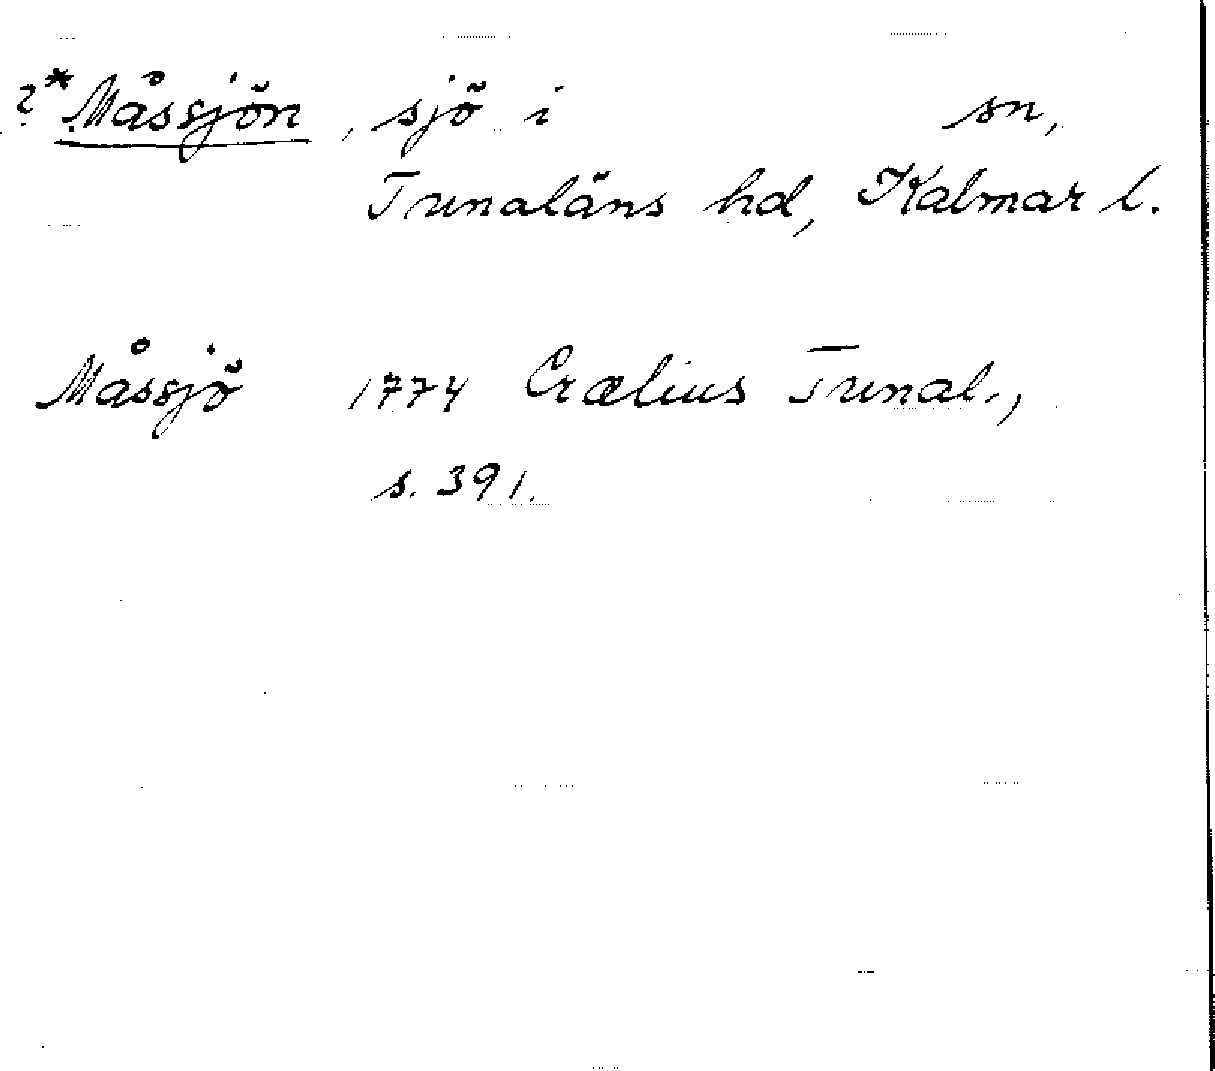 ?*Måssjön, sjö i sn,
Tunaläns hd, Kalmar l.
Måssjö 1774 Crælius Tunal.,
s. 391.